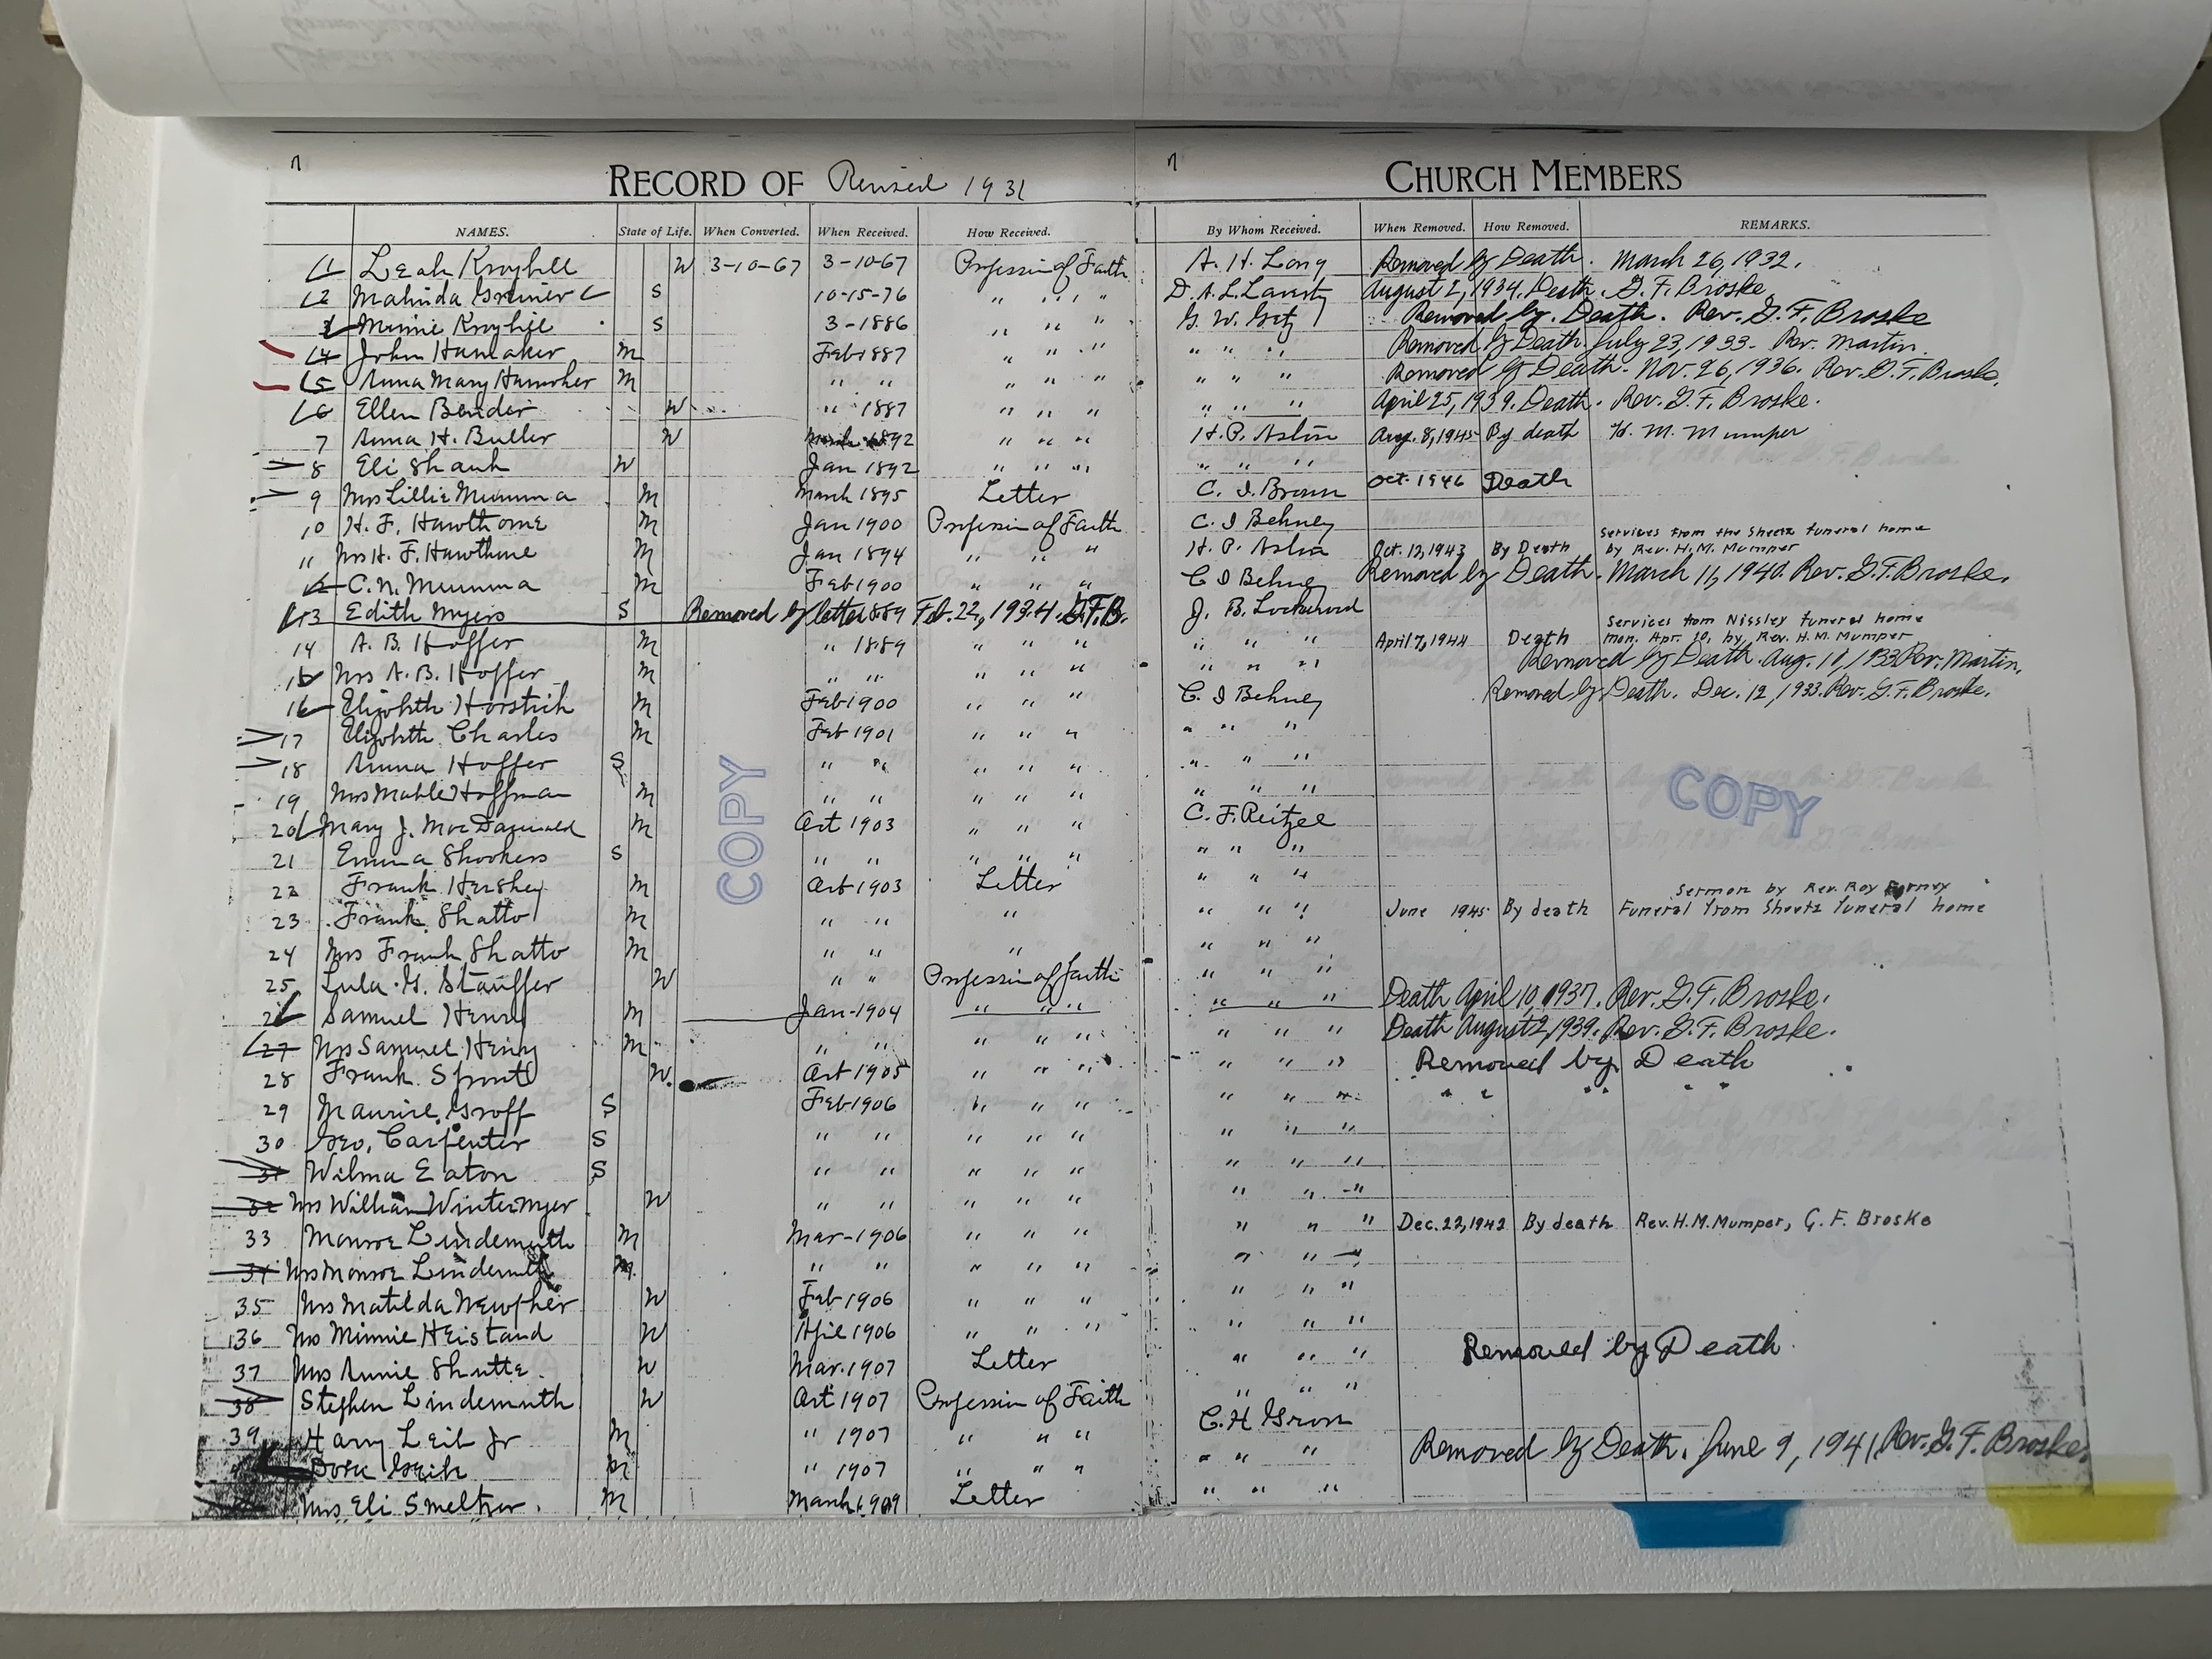 7 7
RECORD OF Revised 1931 CHURCH MEMBERS
NAMES. State of Life. When Converted. When Received. How Received. By Whom Received. When Removed. How Removed. REMARKS.
1 Leah Kroyhill W 3-10-67 3-10-67 Profession of Faith A. H. Long Removed by Death. March 26, 1932.
2 Malinda S 10-15-76 " " " " D. A. L. August 2, 1934. Death. G. F. Broske
3 Minnie Kroyhill S 3-1886 " " " G. W. Getz Removed by Death. Rev. G. F. Broske
14 John Hamaker M Feb 1887 " " " " " " Removed by Death. July 23, 1933- Rev. Martin.
5 Anna Mary Hamaker M " " " " " " " " Removed by Death. Nov. 26, 1936. Rev. G. F. Broske.
6 Ellen Bender W " 1887 " " " " " " April 25, 1939. Death. Rev. G. F. Broske.
7 Anna H. Buller W March 1892 " " " H. P. Aug. 8, 1945 By death H. M. Mumper
8 Eli Shank W Jan 1892 " " " " " "
9 Mrs Lillie Mumma M March 1895 Letter C. I. Brown Oct. 1946 Death
10 H. F. Hawthorne M Jan 1900 Profession of Faith C. I Behney
Services from the Sheetz funeral home
11 Mrs H. F. Hawthorne M Jan 1894 " " " H. P. Oct. 12, 1943 By Death by Rev. H. M. Mumper
12 C. N. Mumma M Feb 1900 " " " C I Behney Removed by Death. March 11, 1940. Rev. G. F. Broske.
13 Edith Myers S Removed by letter 1889 Feb. 22, 1934. G. F. B. J. B. Lockwood
Services from Nissley funeral home
14 A. B. Hoffer M " 1889 " " " " " " April 7, 1944 Death Mon. Apr. 10, by, Rev. H. M. Mumper
15 Mrs A. B. Hoffer M " " " " " " " " Removed by Death. Aug. 11, 1933 Rev. Martin.
16 Elizabeth Horstich M Feb 1900 " " " C. I Behney Removed by Death. Dec. 12, 1933. Rev. G. F. Broske.
17 Elizabeth Charles M Feb 1901 " " " " " "
18 Anna Hoffer S " " " " " " " "
19 Mrs Hoffman M " " " " " " " "
COPY COPY
20 Mary J. M Oct 1903 " " " C. F. Reitzel
21 Emma Shookers S " " " " " " " "
22 Frank Hershey M Oct 1903 Letter " " "
Sermon by Rev. Roy Forney
23 Frank Shatto M " " " " " " June 1945 By death Funeral from Sheetz funeral home
24 Mrs Frank Shatto M " " " " " "
25 Lula G. Stauffer W " " Profession of faith " " "
26 Samuel Henry M Jan-1904 " " " " " " Death April 10, 1937. Rev. G. F. Broske.
27 Mrs Samuel Henry M " " " " " " " " Death August 2, 1939. Rev. G. F. Broske.
28 Frank Sprout W. Oct 1905 " " " " " " Removed by Death
29 Maurice Groff S Feb 1906 " " " " " " " " " "
30 Geo. Carpenter S " " " " " " " "
31 Wilma Eaton S " " " " " " " "
32 Mrs William Wintermyer W " " " " " " " "
33 Monroe Lindemuth M Mar-1906 " " " " " " Dec. 22, 1942 By death Rev. H. M. Mumper, G. F. Broske
34 Mrs Monroe Lindemuth M. " " " " " " " "
35 Mrs Matilda Newpher W Feb 1906 " " " " " "
36 Mrs Minnie Heistand W April 1906 " " " " " "
37 Mrs Annie Shutte. W Mar. 1907 Letter " " " Removed by Death.
38 Stephen Lindemuth W Oct 1907 Profession of Faith " " "
39 Harry Leib Jr M " 1907 " " " C. H
M " 1907 " " " " " " Removed by Death. June 9, 1941, Rev. G. F. Broske.
Mrs. Eli Smeltzer. M March 1909 Letter " " "